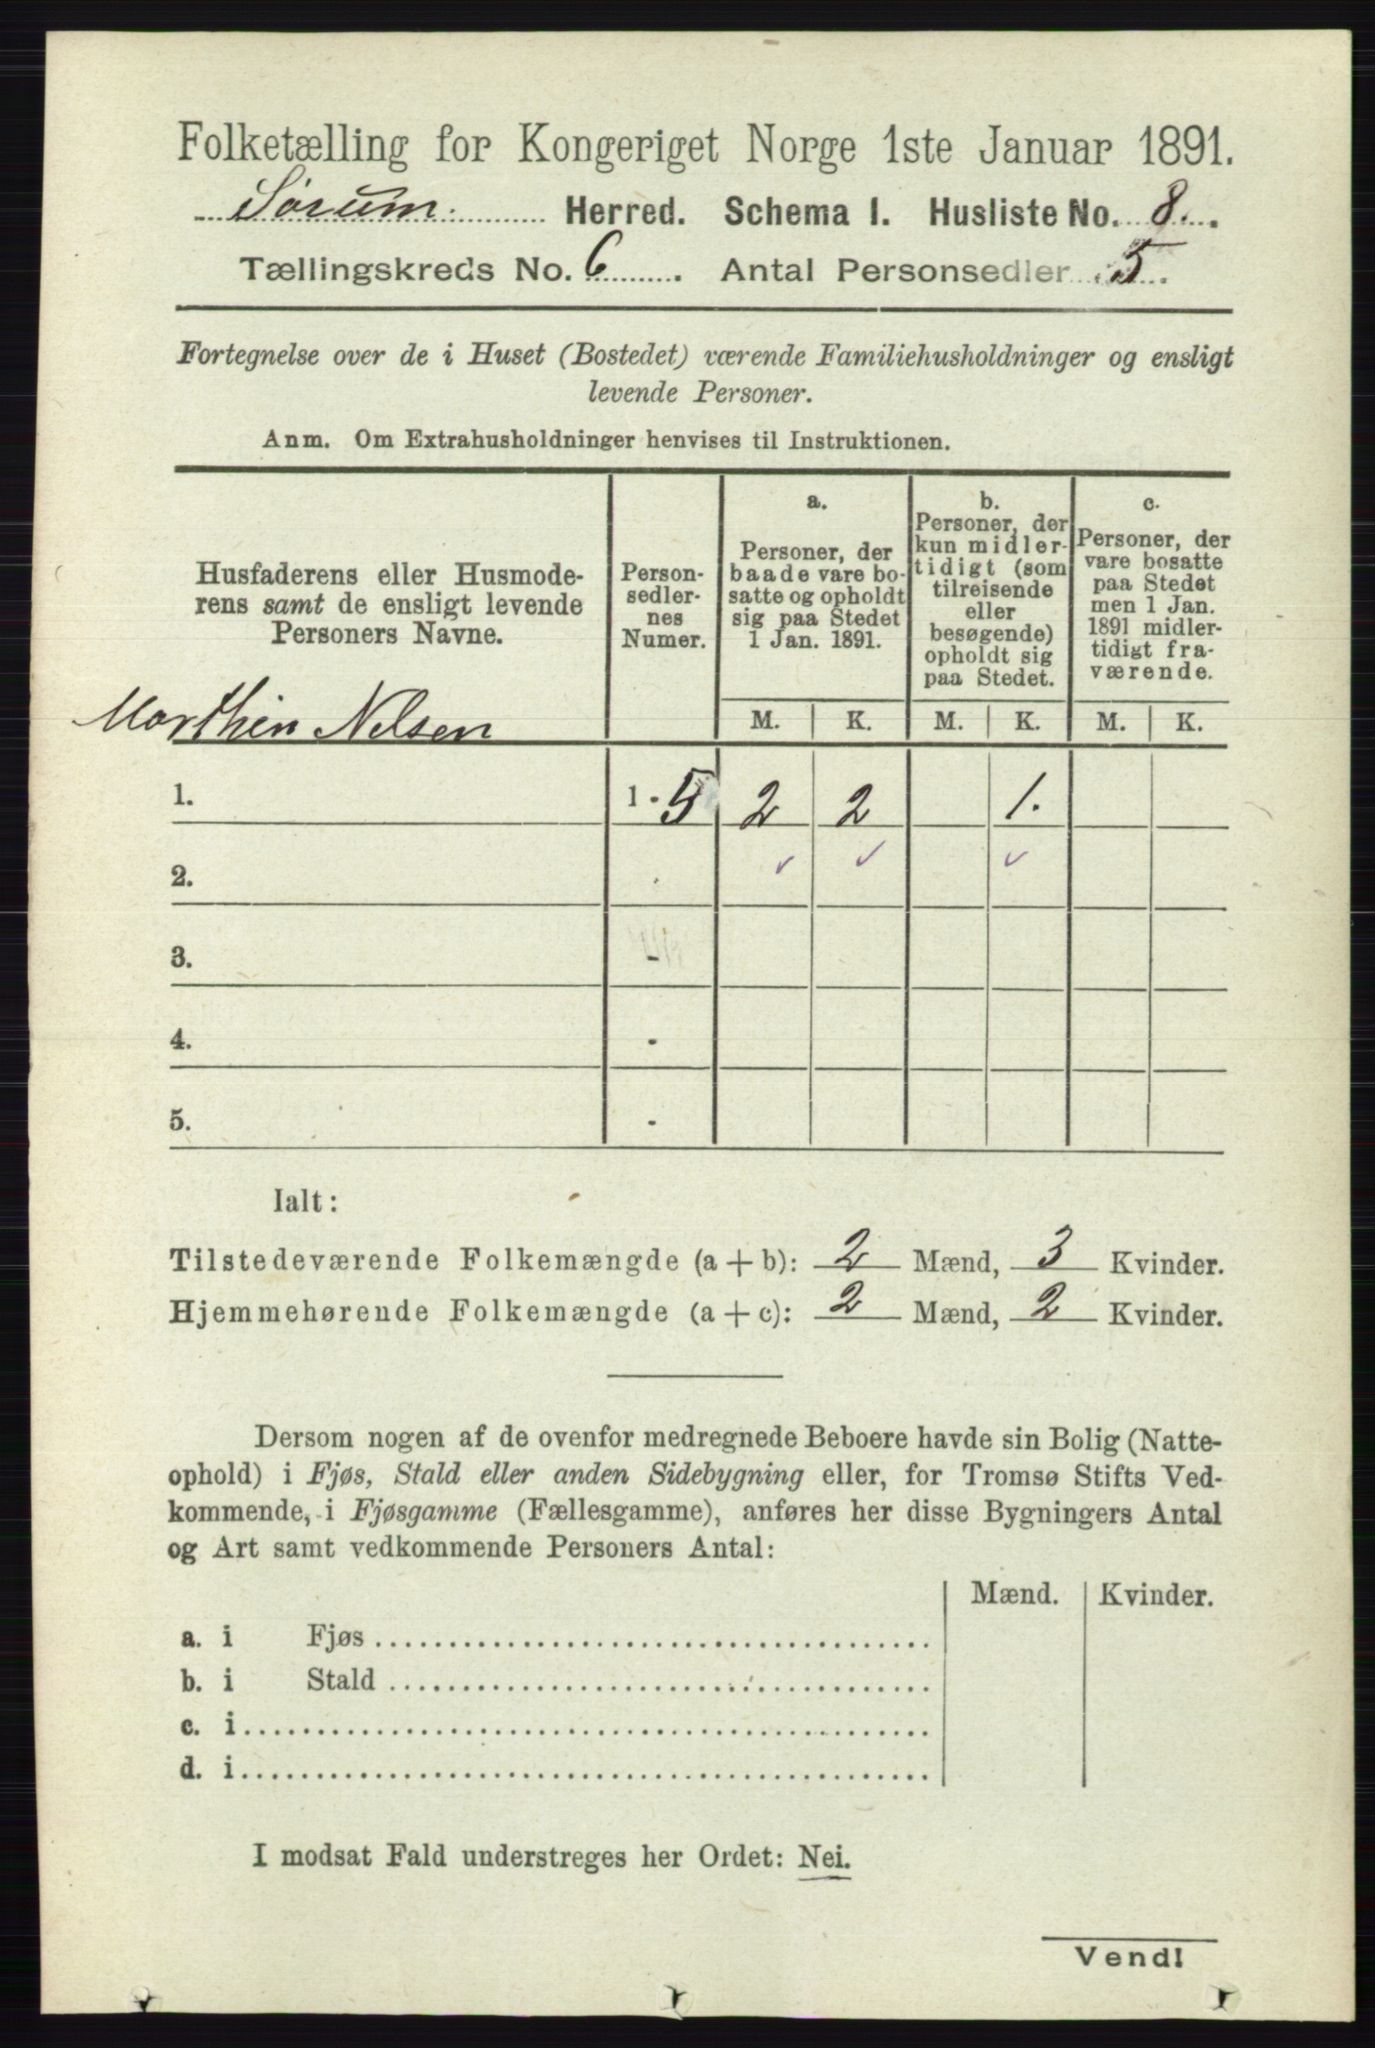 Folketælling for Kongeriget Norge 1ste Januar 1891.
Sørum. Herred. Schema I. Husliste No. 8.
Tællingskreds No. 6. Antal Personsedler 5.
Fortegnelse over de i Huset (Bostedet) værende Familiehusholdninger og ensligt
levende Personer.
Anm. Om Extrahusholdninger henvises til Instruktionen.
Husfaderens eller Husmode-
rens samt de ensligt levende
Personers Navne.
Person-
sedler-
nes
Numer.
a.
Personer, der
baade vare bo-
satte og opholdt
sig paa Stedet
1 Jan. 1891.
b.
Personer, der
kun midler-
tidigt (som
tilreisende
eller
besøgende)
opholdt sig
paa Stedet.
c.
Personer, der
vare bosatte
paa Stedet
men 1 Jan.
1891 midler-
tidigt fra-
værende.
M. K. M. K. M. K.
Marthin Nelsen
1. 1 - 5 2 2 1.
2.
3. -
4. -
5. -
Ialt:
Tilstedeværende Folkemængde (a + b): 2 Mænd, 3 Kvinder.
Hjemmehørende Folkemængde (a + c): 2 Mænd, 2 Kvinder.
Dersom nogen af de ovenfor medregnede Beboere havde sin Bolig (Natte-
ophold) i Fjøs, Stald eller anden Sidebygning eller, for Tromsø Stifts Ved-
kommende, i Fjøsgamme (Fællesgamme), anføres her disse Bygningers Antal
og Art samt vedkommende Personers Antal:
Mænd. Kvinder.
a. i Fjøs
b. i Stald
c. i
d. i
I modsat Fald understreges her Ordet: Nei.
Vend!